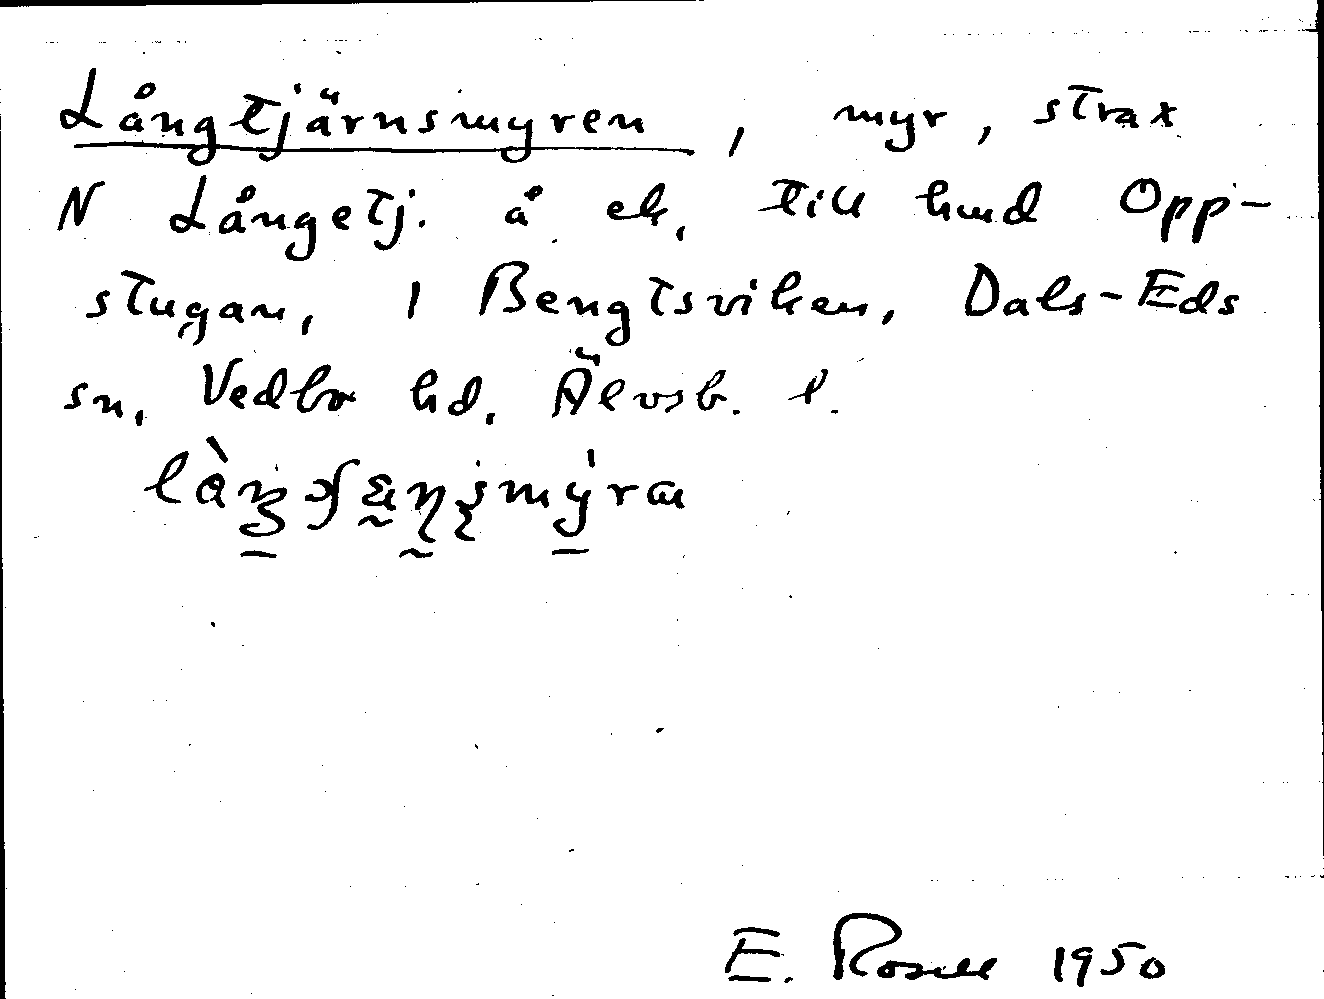 Långtjärnsmyren, myr, strax
N Långetj. å ek, till hmd Opp-
stugan, 1 Bengtsviken, Dals-Eds
sn, Vedbo hd. Älvsb. l.
E. Rosell 1950